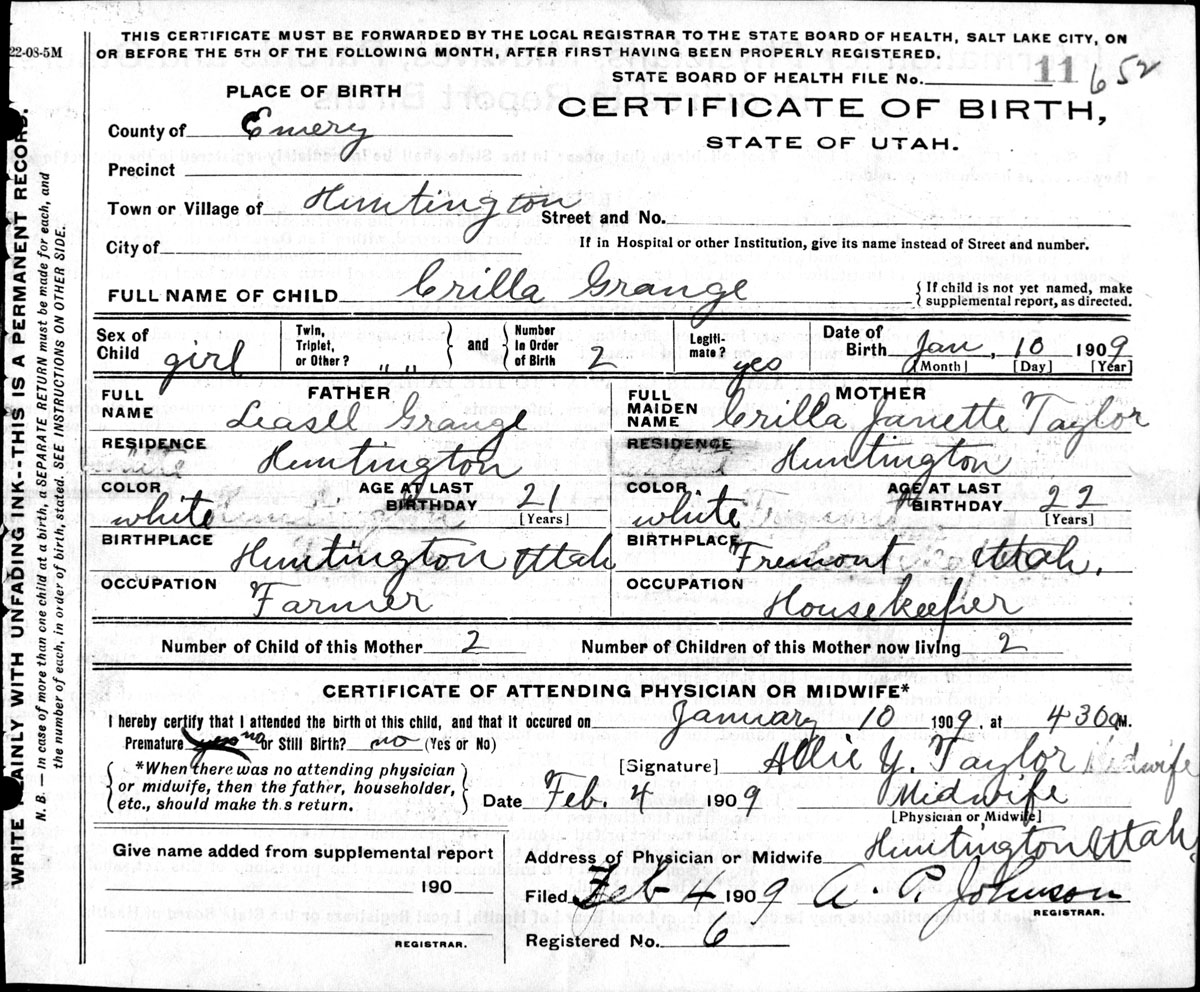 22-08-5M
THIS CERTIFICATE MUST BE FORWARDED BY THE LOCAL REGISTRAR TO THE STATE BOARD OF HEALTH, SALT LAKE CITY, ON
OR BEFORE THE 5TH OF THE FOLLOWING MONTH, AFTER FIRST HAVING BEEN PROPERLY REGISTERED.
STATE BOARD OF HEALTH FILE No. 11 652
PLACE OF BIRTH
CERTIFICATE OF BIRTH,
STATE OF UTAH.
County of Emery
Precinct
Town or Village of Huntington Street and No.
City of If in Hospital or other Institution, give its name instead of Street and number.
FULL NAME OF CHILD Crilla Grange { If child is not yet named, make
supplemental report, as directed.
Sex of Child girl Twin, Triplet, or Other? " " } and { Number in Order of Birth 2 Legiti-mate? yes Date of Birth Jan, 10 1909
[Month] [Day] [Year]
FATHER MOTHER
FULL NAME Leasll Grange FULL MAIDEN NAME Crilla Janette Taylor
RESIDENCE Huntington RESIDENCE Huntington
COLOR white AGE AT LAST BIRTHDAY 21 [Years] COLOR white AGE AT LAST BIRTHDAY 22 [Years]
BIRTHPLACE Huntington Utah BIRTHPLACE Fremont Utah.
OCCUPATION Farmer OCCUPATION Housekeeper
Number of Child of this Mother 2 Number of Children of this Mother now living 2
CERTIFICATE OF ATTENDING PHYSICIAN OR MIDWIFE*
I hereby certify that I attended the birth of this child, and that it occured on January 10 1909, at 430 a M.
Premature yes no or Still Birth? no (Yes or No)
{ *When there was no attending physician
or midwife, then the father, householder,
etc., should make this return. }
[Signature] Allie Y. Taylor Midwife
Date Feb. 4 1909 Midwife
[Physician or Midwife]
Give name added from supplemental report
190
REGISTRAR.
Address of Physician or Midwife Huntington Utah
Filed Feb 4 1909 A. P. Johnson
REGISTRAR.
Registered No. 6
WRITE PLAINLY WITH UNFADING INK--THIS IS A PERMANENT RECORD.
N. B. — In case of more than one child at a birth, a SEPARATE RETURN must be made for each, and
the number of each, in order of birth, stated. SEE INSTRUCTIONS ON OTHER SIDE.